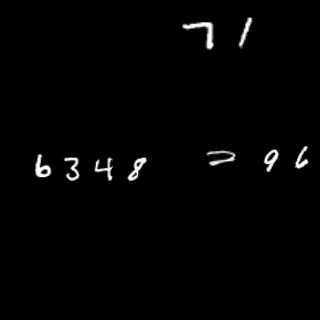 71
6348 = 96